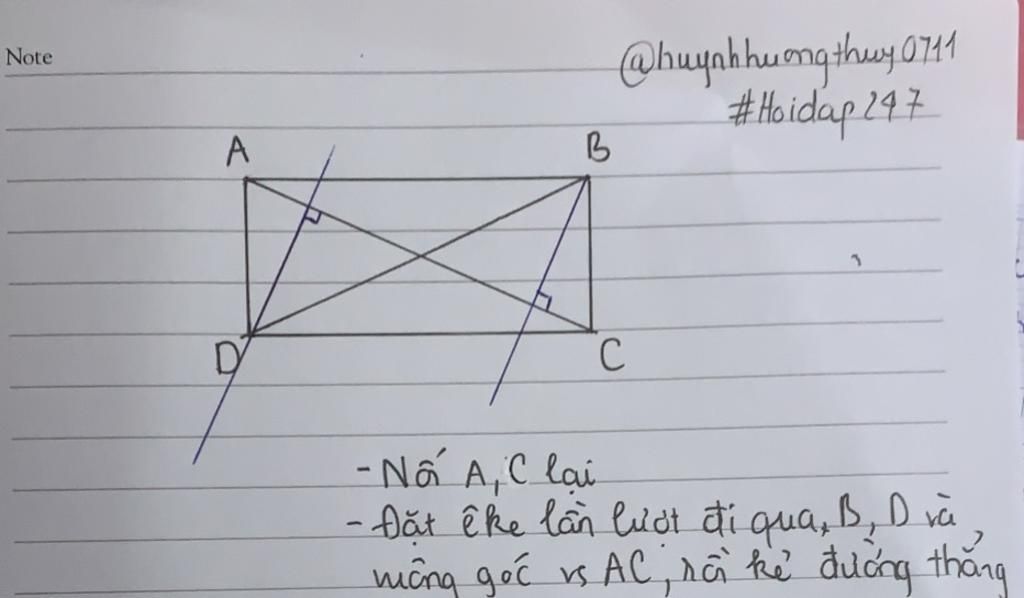 Note
@huynhhuongthuy0711
#Hoidap247
A
B
D
C
- Nối A, C lại
- Đặt êke lần lượt đi qua, B, D và
vuông góc vs AC, rồi kẻ đường thẳng